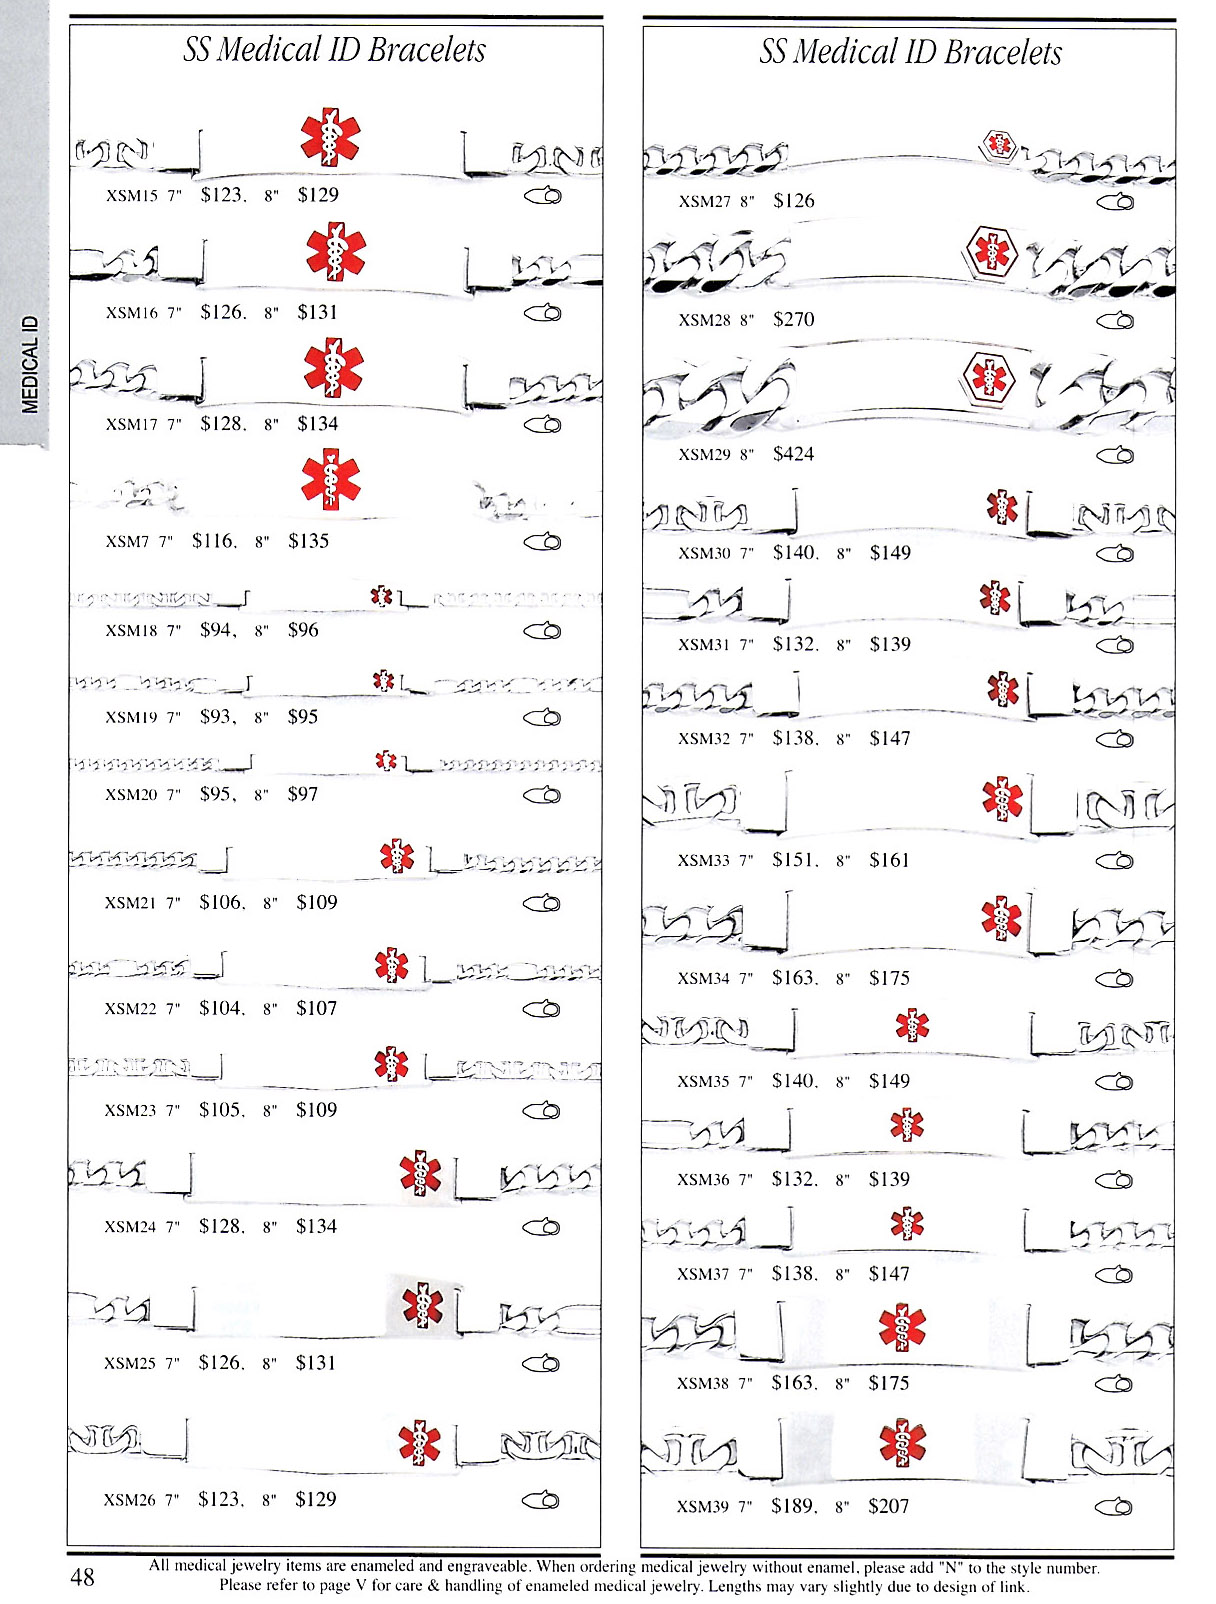 SS Medical ID Bracelets
XSM15 7" $123. 8" $129
XSM16 7" $126. 8" $131
XSM17 7" $128. 8" $134
XSM7 7" $116. 8" $135
XSM18 7" $94, 8" $96
XSM19 7" $93, 8" $95
XSM20 7" $95, 8" $97
XSM21 7" $106. 8" $109
XSM22 7" $104. 8" $107
XSM23 7" $105. 8" $109
XSM24 7" $128. 8" $134
XSM25 7" $126. 8" $131
XSM26 7" $123. 8" $129
SS Medical ID Bracelets
XSM27 8" $126
XSM28 8" $270
XSM29 8" $424
XSM30 7" $140. 8" $149
XSM31 7" $132. 8" $139
XSM32 7" $138. 8" $147
XSM33 7" $151. 8" $161
XSM34 7" $163. 8" $175
XSM35 7" $140. 8" $149
XSM36 7" $132. 8" $139
XSM37 7" $138. 8" $147
XSM38 7" $163. 8" $175
XSM39 7" $189. 8" $207
MEDICAL ID
48
All medical jewelry items are enameled and engraveable. When ordering medical jewelry without enamel, please add "N" to the style number.
Please refer to page V for care & handling of enameled medical jewelry. Lengths may vary slightly due to design of link.